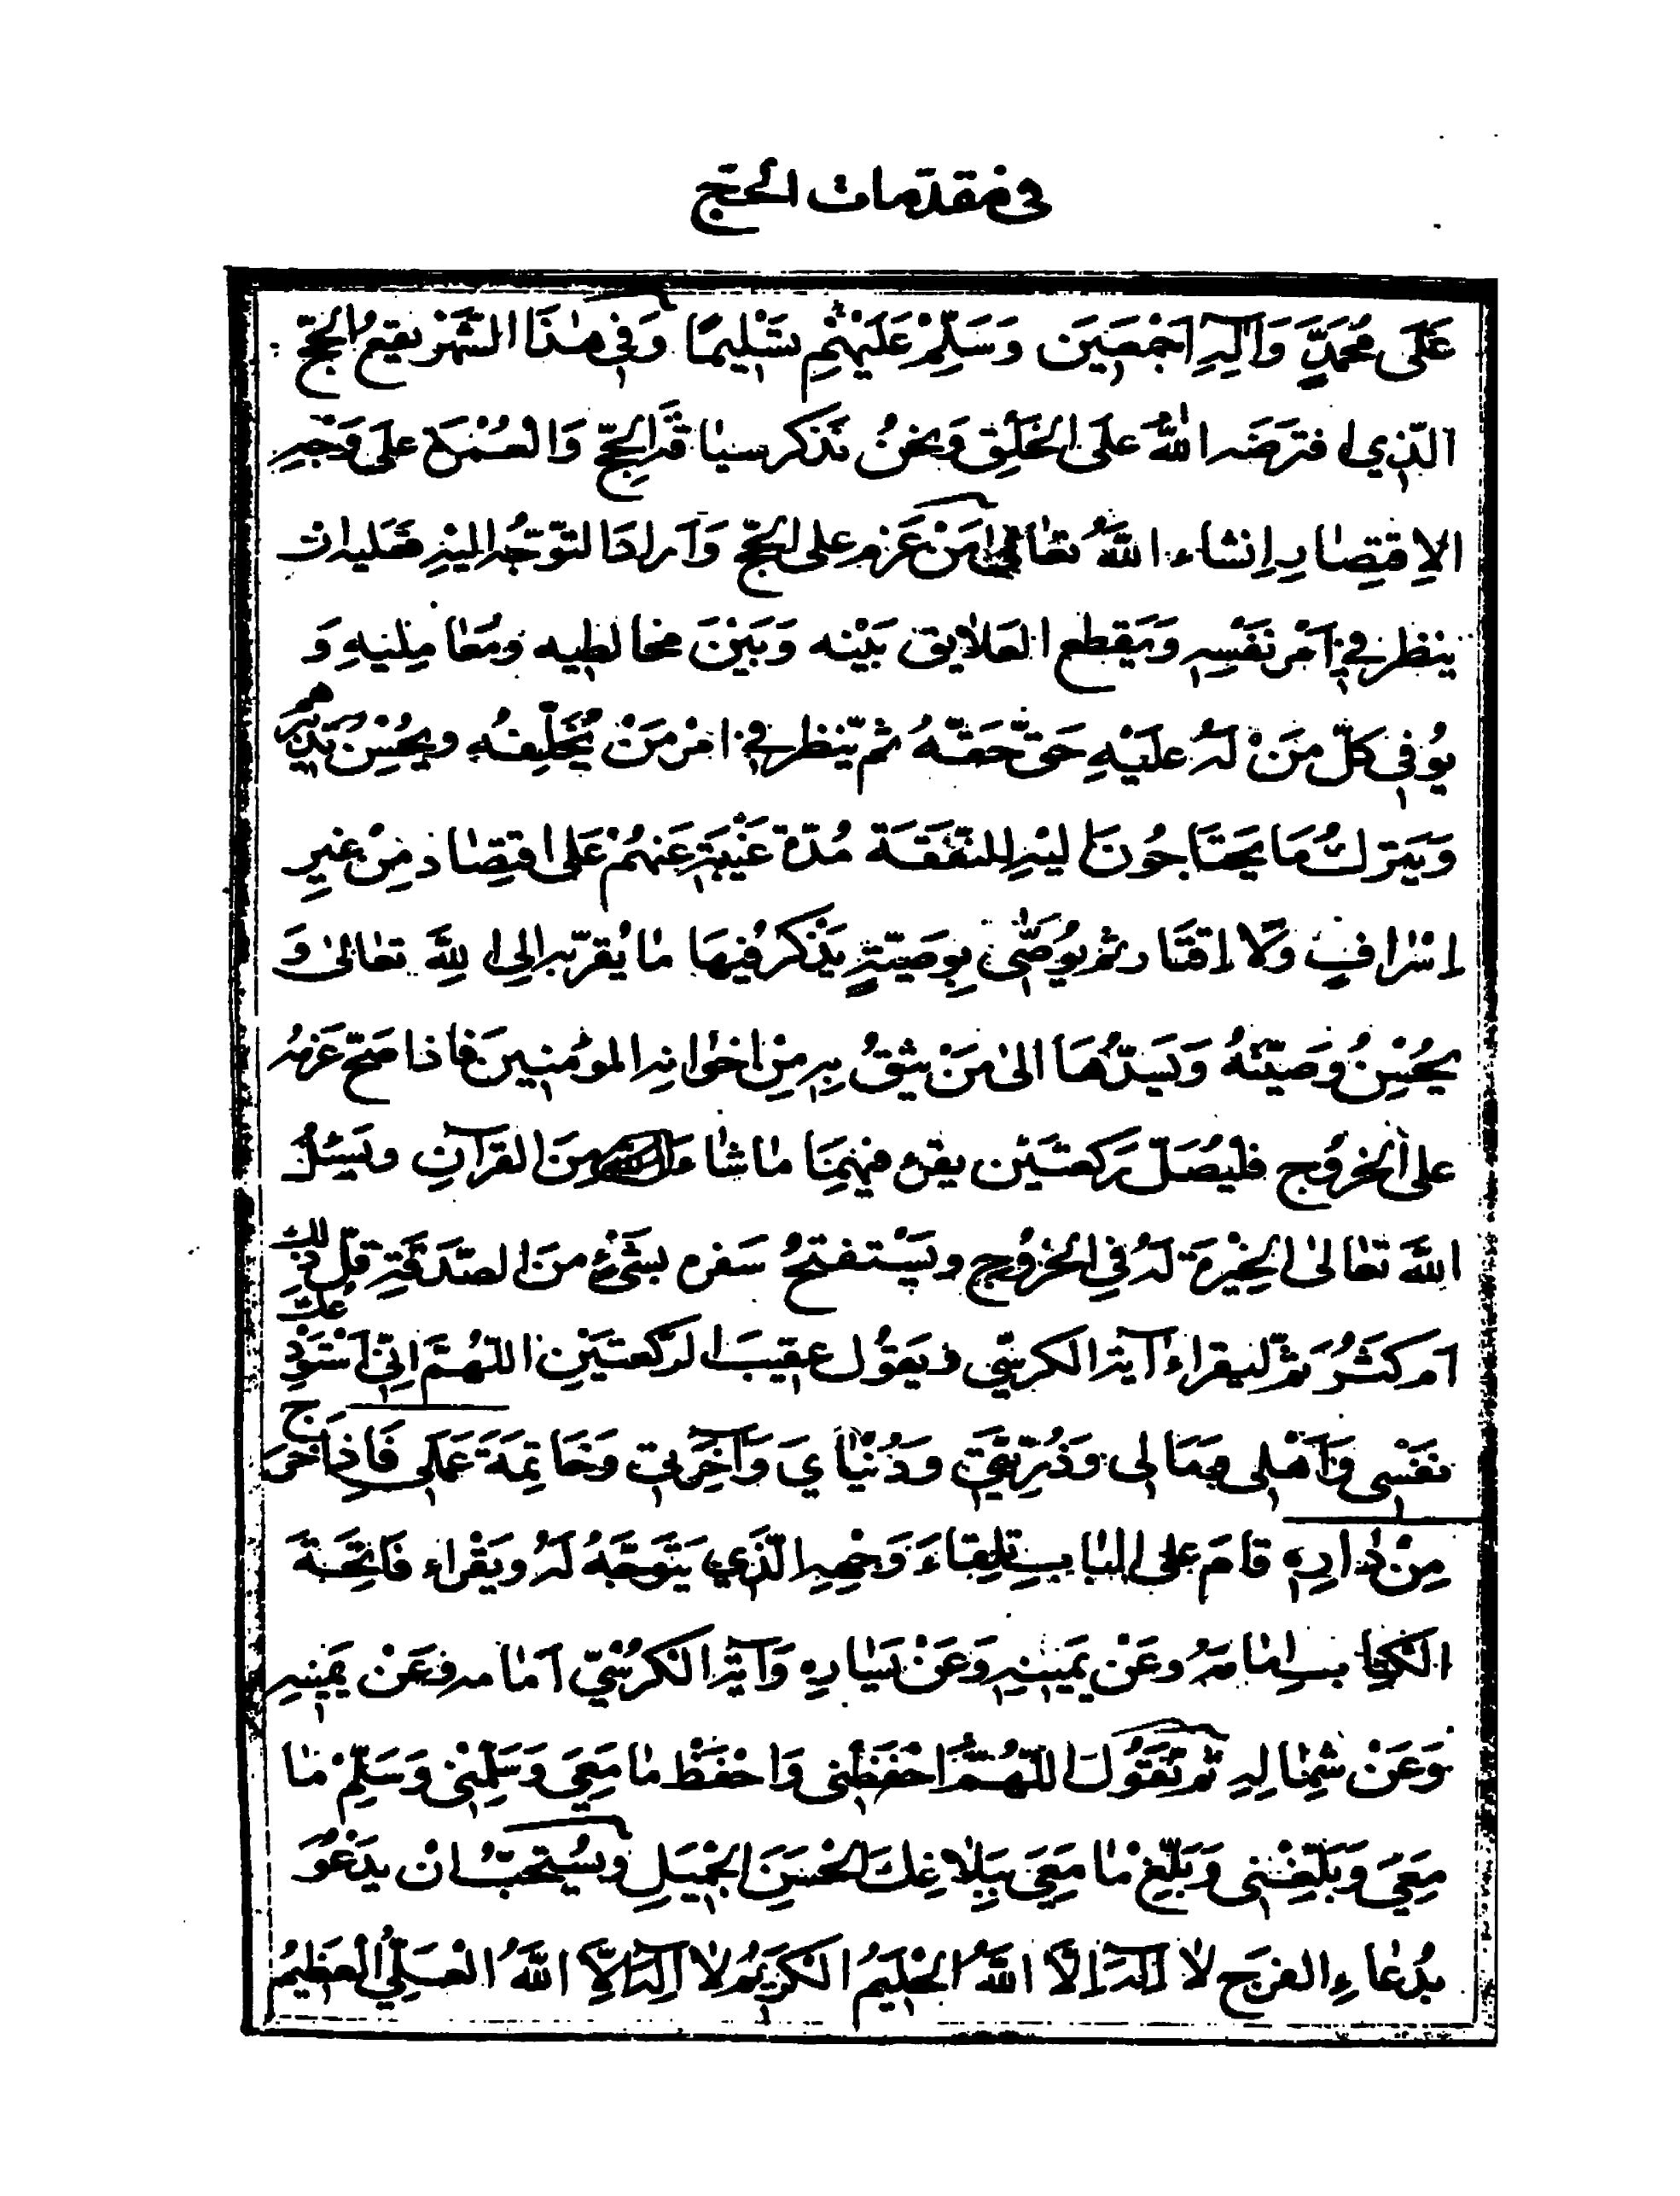 في مقدمات الحج
عَلَى مُحَمَّدٍ وَآلِهِ اَجْمَعِينَ وَسَلِّمْ عَلَيْهِمْ تَسْلِيمًا وَفِي هٰذَا الشَّهْرِ يَقَعُ الْحَجُّ
الَّذِي افترَضَه اللهُ عَلَى الخَلْقِ وَنَحْنُ نَذكر سياقَةَ الحَجِّ وَالعُمْرَة على وَجْهِ
الاِقتِصٰادِ اِنشاء اللهُ تعٰالىٰ مَنْ عَزم على الحَجِّ وَاَرادَ التوَجُّه اليْهِ فَعَليه اَن
ينظر في اَمْر نَفْسِهِ وَيَقطع العَلايق بَيْنه وَبَيْنَ مخالطيه ومُعٰامِليهِ وَ
يُوفي كلّ مَنْ لَهُ عليْهِ حَقٌّ حَقَّهُ ثم يَنظر في امْر مَنْ يُخَلِّفُه ويُحْسِنُ تَدْبيرهم
وَيَترك مَا يَحتَاجُونَ اليْهِ للنفَقَة مُدّة غَيْبَتِهِ عَنهُمْ عَلى اقتِصٰاد مِنْ غيرِ
اِسْرافٍ وَلا اِقتَار ثم يُوصّى بِوصيّةٍ يَذْكر فيهَا مٰا يُقَرّبه الى اللهِ تعٰالىٰ وَ
يُحْسِنُ وصيّتَهُ وَيُسندُهَا الىٰ مَنْ يثقُ بِهِ مِنْ اخوٰانه المؤمنينَ فاذا صَحّ عَزمه
على الخروُج فليُصَلّ رَكعتَيْن يقرء فيهِمٰا مٰا شٰاءَ اللهُ مِنَ القرآنِ ويَسْئلُ
اللهَ تعٰالىٰ الخِيْرَة لَهُ فِي الخرُوج ويَسْتفتحُ سَفره بشَئْءٍ منَ الصّدَقَةِ قلّ ذلك
اَم كثُرَ ثُمّ ليقراء آية الكرسيّ ويَقوُل عقيبَ الرّكعتَيْنِ اللّهُمَّ اِنّي اَسْتَوْدِعُكَ
نفسي وَاَهْلِى وَمَالى وَذُرّيَّتي وَدُنْيٰايَ وَآخِرَتي وَخَاتِمَةَ عَمَلي فَاِذا خَرَجَ
مِنْ دٰارِهِ قامَ على البٰابِ تِلقٰاءَ وَجْهِهِ الّذي يَتَوجَّهُ لَهُ ويَقْراء فَاتِحَةَ
الكِتاب اَمٰامهُ وعَن يمَينِهِ وَعَنْ يَسٰارِه وَآيَة الكرْسيّ اَمٰامه وعَنْ يمَينِهِ
وَعَنْ شِمٰالِهِ ثُمّ يَقوُلُ اللّهُمَّ احْفَظْني وَاحْفَظْ مٰا مَعِيَ وَسَلِّمْني وَسَلِّمْ مٰا
مَعِيَ وَبَلِّغْني وَبَلِّغْ مٰا مَعِيَ بِبَلاٰغِكَ الحْسَنِ الْجَميلِ ويُسْتحَبّ انْ يدَعُوَ
بدُعٰاءِ الفَرَج لاٰ اِلهَ اِلاّ اللّهُ الحَليمُ الكَريمُ لاٰ اِلهَ اِلاّ اللّهُ العَليُّ الْعَظيمُ